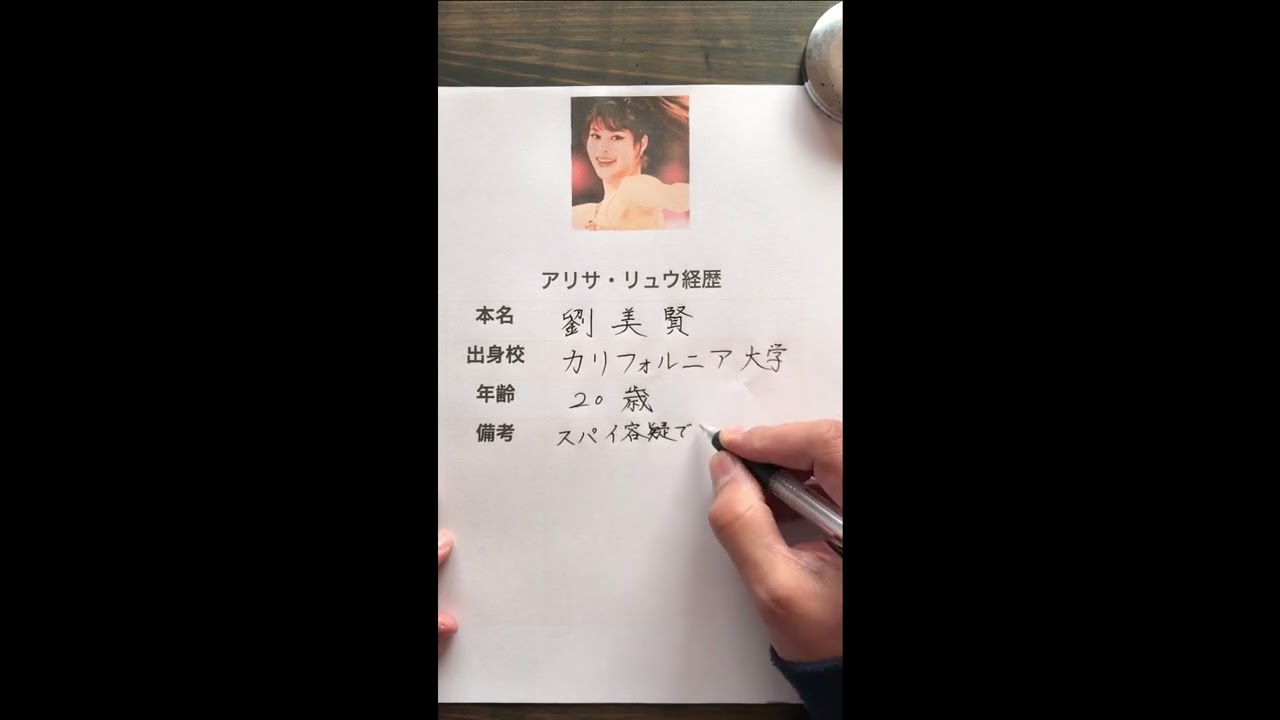 アリサ・リュウ経歴
本名 劉美賢
出身校 カリフォルニア大学
年齢 20歳
備考 スパイ容疑で